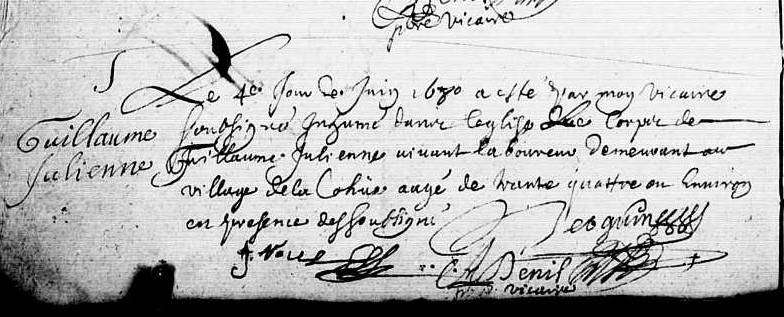 pbre vicaire
S
Guillaume
Julienne
Le 4e Jour de Juin 1680 a esté par moy vicaire
soubsigné Inhumé dans l'eglise le Corps de
Guillaume Julienne vivant laboureur demeurant au
village de la Cohüe aagé de trante quattre an Environ
en presence des soubsigné
Denis
vicaire